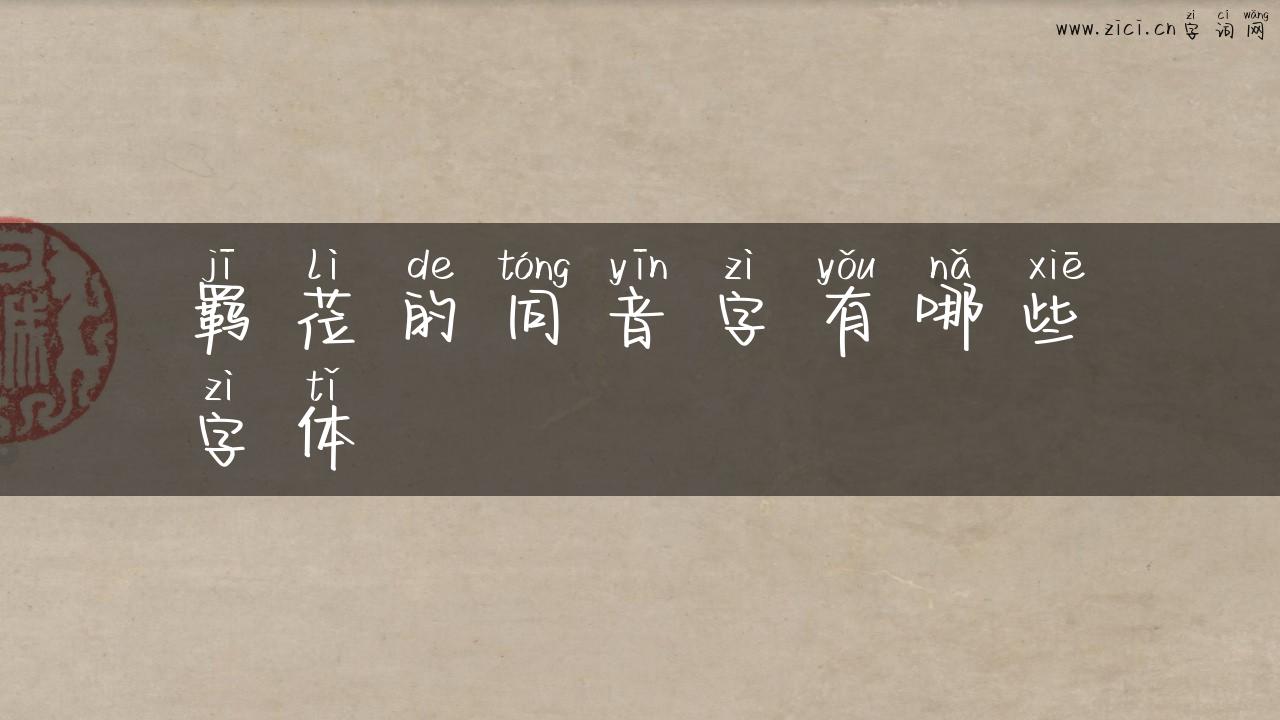 zì cí wǎng
www.zici.cn 字词网
jī lì de tóng yīn zì yǒu nǎ xiē
羁莅的同音字有哪些
zì tǐ
字体